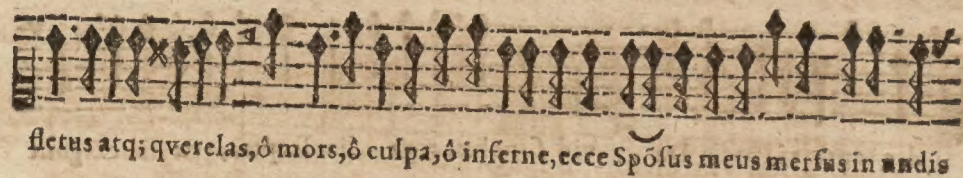 fletus atq; qverelas, ô mors, ô culpa, ô inferne, ecce Spõſus meus merſus in undis